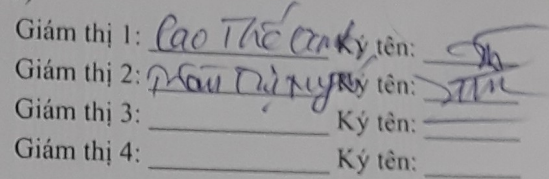 Giám thị 1: Cao Thế Anh Ký tên:
Giám thị 2: Thị Ký tên:
Giám thị 3: Ký tên:
Giám thị 4: Ký tên: